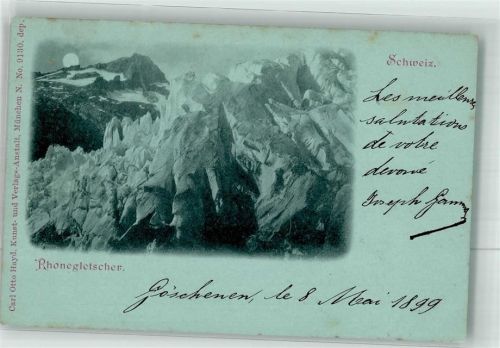 Carl Otto Hayd, Kunst- und Verlags-Anstalt, München N. No. 9130, dep.
Schweiz.
Les meilleures
salutations
de votre
devoué
Joseph
Rhonegletscher.
Göschenen, le 8 Mai 1899